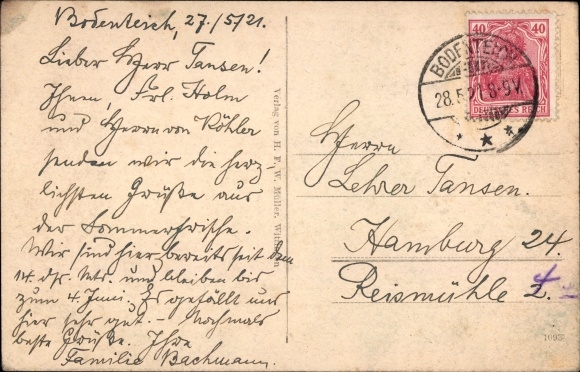 Bodenteich, 27./5/21.
Lieber Herr Jansen!
Ihnen, Frl. Holm
und Herrn von Köhler
senden wir die herz-
lichsten Grüße aus
der Sommerfrische.
Wir sind hier bereits seit dem
14. ds. Mts. und bleiben bis
zum 4. Juni. Es gefällt uns
hier sehr gut. – Nochmals
beste Grüße. Ihre
Familie Bachmann.
Verlag von H. F. W. Müller,
40 40
DEUTSCHES REICH
BODENTEICH
28.5.21 8-9V
Herrn
Lehrer Jansen.
Hamburg 24.
Reismühle 2.
4